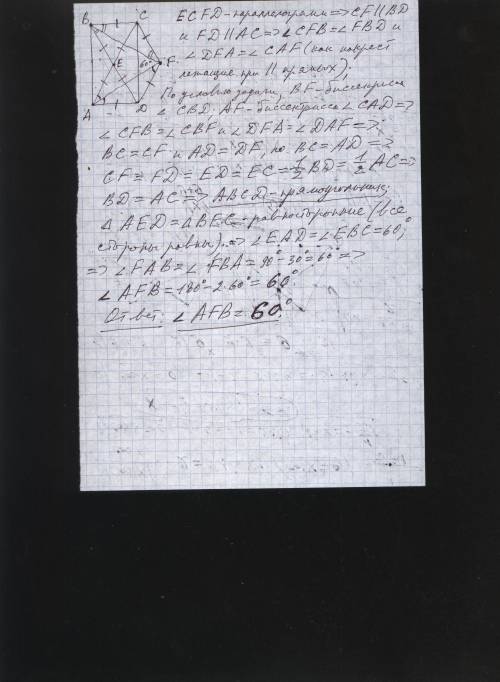 B C
E 60° F
A D
ECFD - параллелограмм => CF || BD
и FD || AC => ∠CFB = ∠FBD и
∠DFA = ∠CAF (как накрест
лежащие при || прямых).
По условию задачи, BF - биссектриса
∠CBD, AF - биссектриса ∠CAD =>
∠CFB = ∠CBF и ∠DFA = ∠DAF =>
BC = CF и AD = DF, но BC = AD =>
CF = FD = ED = EC = 1/2 BD = 1/2 AC =>
BD = AC => ABCD - прямоугольник;
△AED = △BEC - равносторонние (все
стороны равны). => ∠EAD = ∠EBC = 60°,
=> ∠FAB = ∠FBA = 90° - 30° = 60° =>
∠AFB = 180° - 2·60° = 60°.
Ответ: ∠AFB = 60°